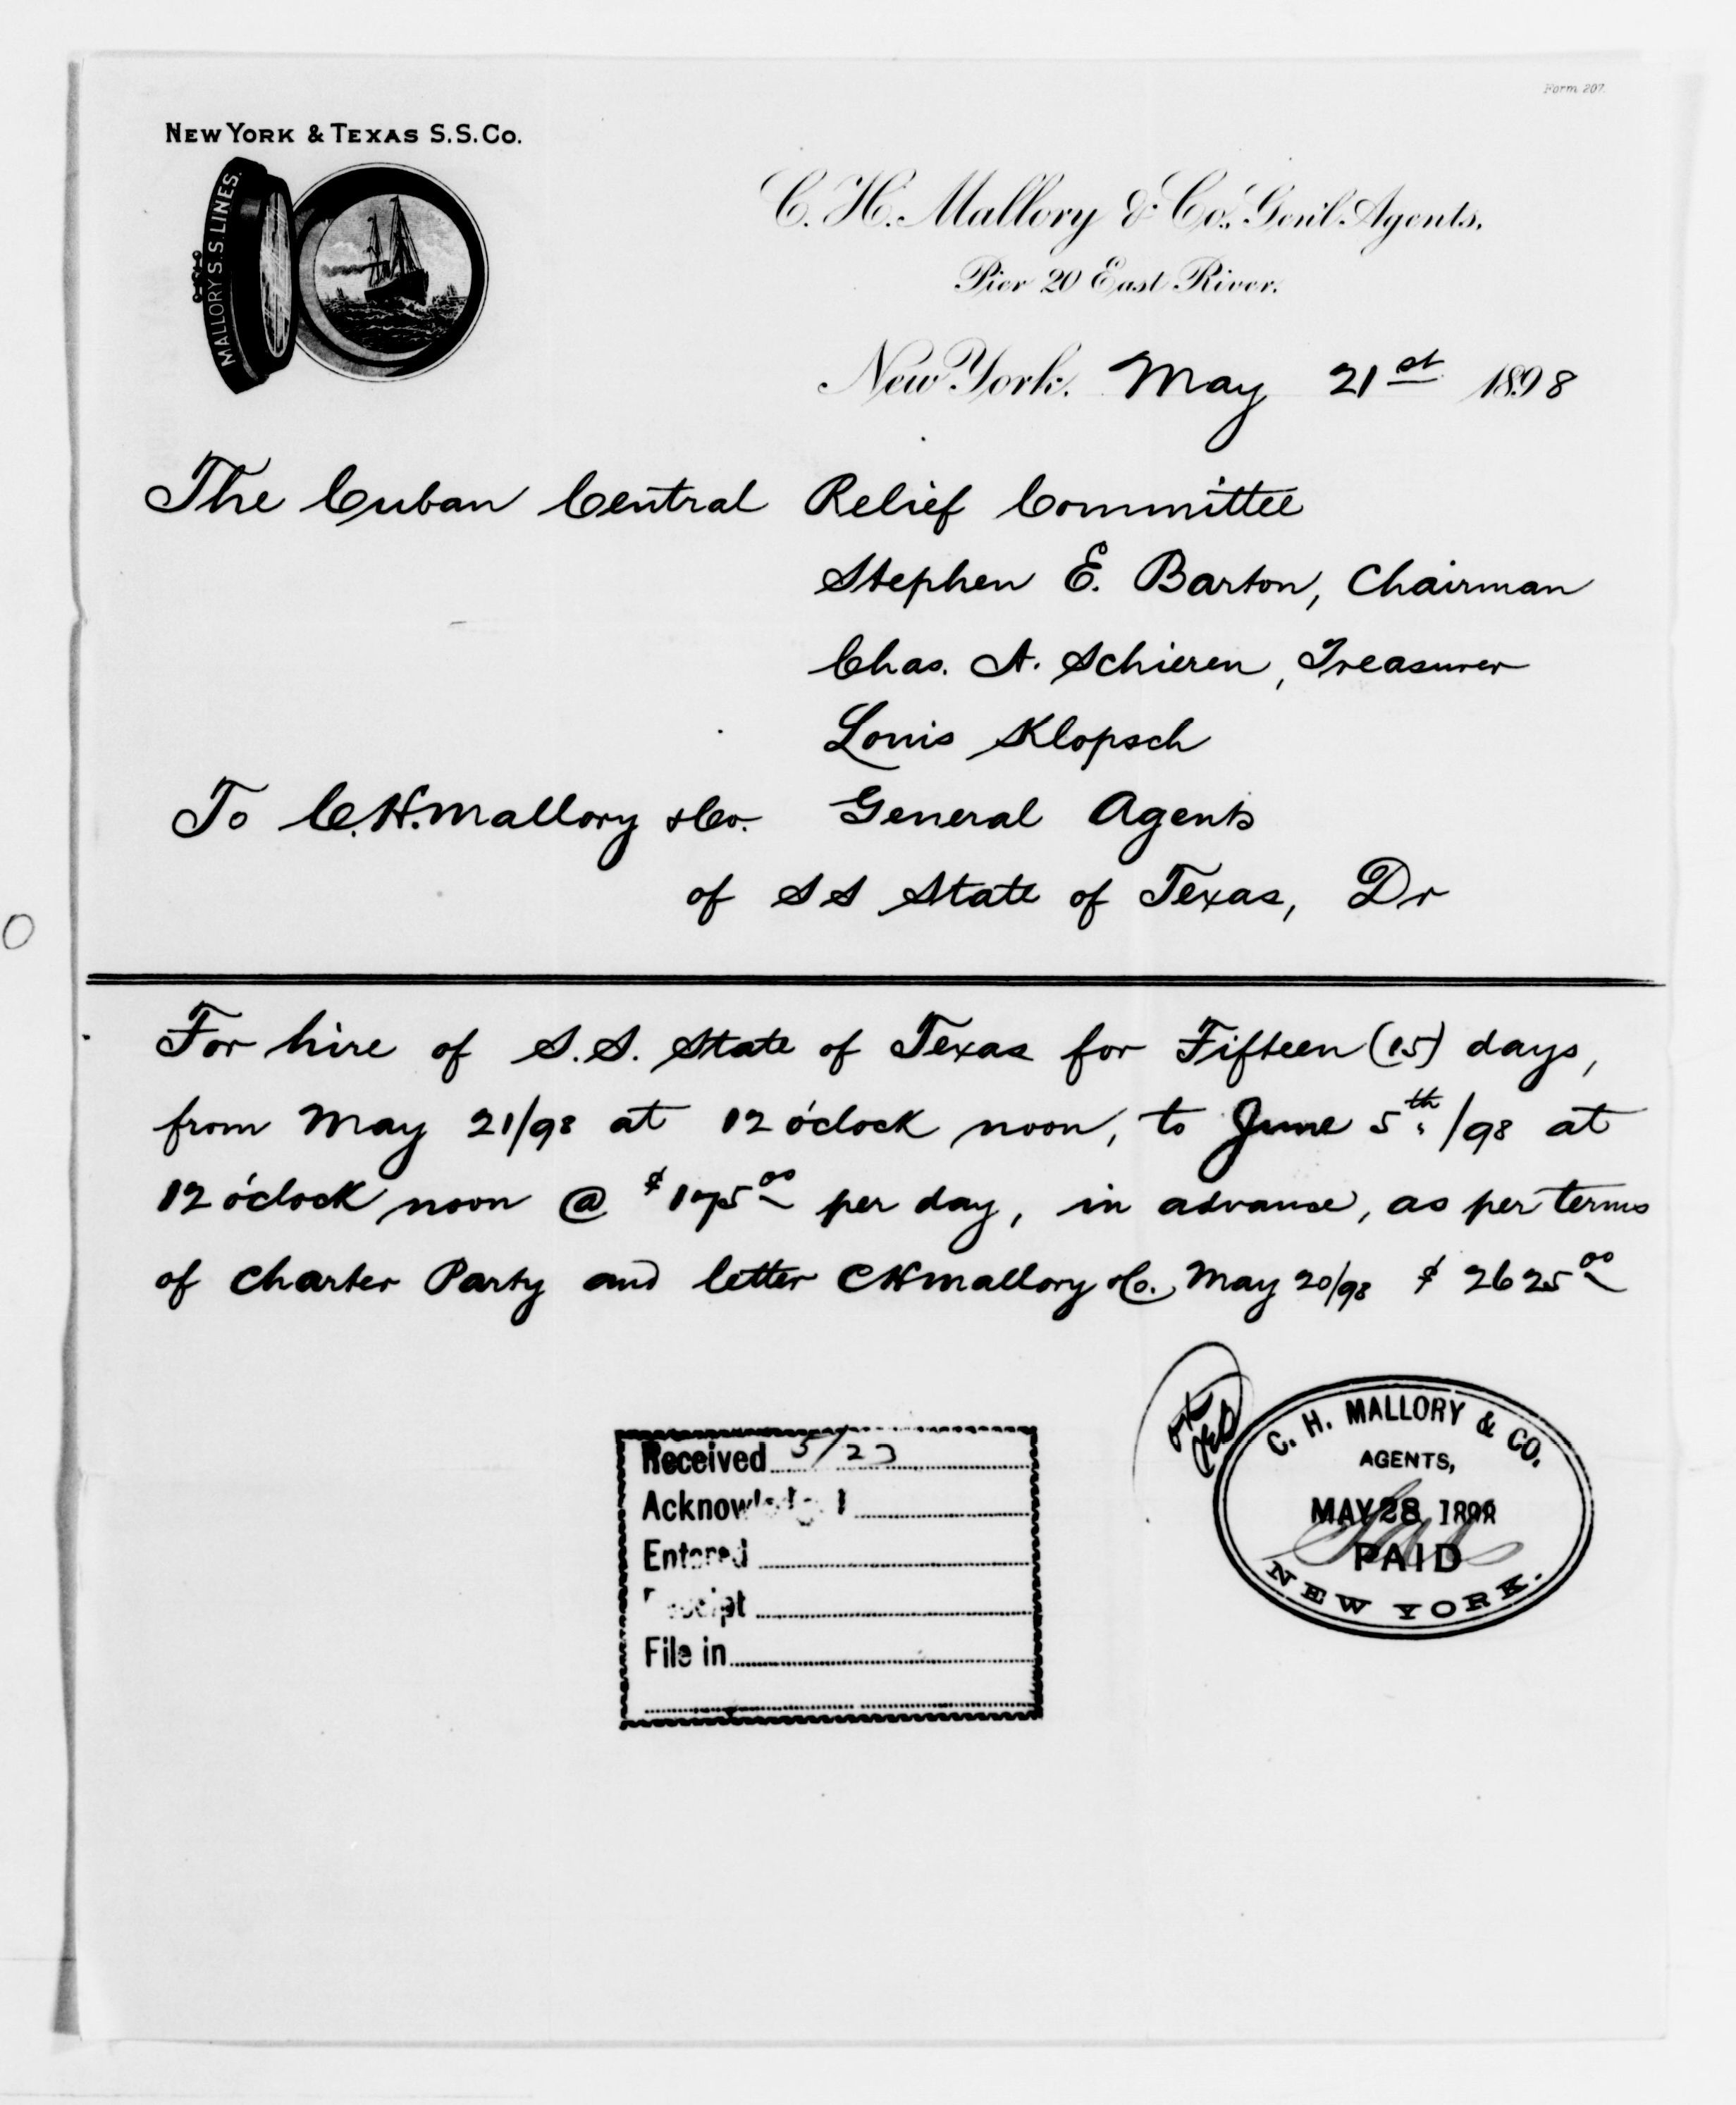 Form 207.
NEW YORK & TEXAS S.S.CO.
MALLORY S.S. LINES.
C. H. Mallory & Co., Gen'l Agents,
Pier 20 East River.
New York. May 21st 1898
The Cuban Central Relief Committee
Stephen E. Barton, Chairman
Chas. A. Schieren, Treasurer
Louis Klopsch
To C.H. Mallory & Co. General Agents
of SS State of Texas, Dr
For hire of S.S. State of Texas for Fifteen (15) days,
from May 21/98 at 12 o'clock noon, to June 5th/98 at
12 o'clock noon @ $175 00 per day, in advance, as per terms
of Charter Party and letter CHMallory &Co. May 20/98 $ 2625 00
Received 5/23
Acknowledged
Entered
Receipt
File in
OK
C. H. MALLORY & CO.
AGENTS,
MAY 28 1898
PAID
NEW YORK.